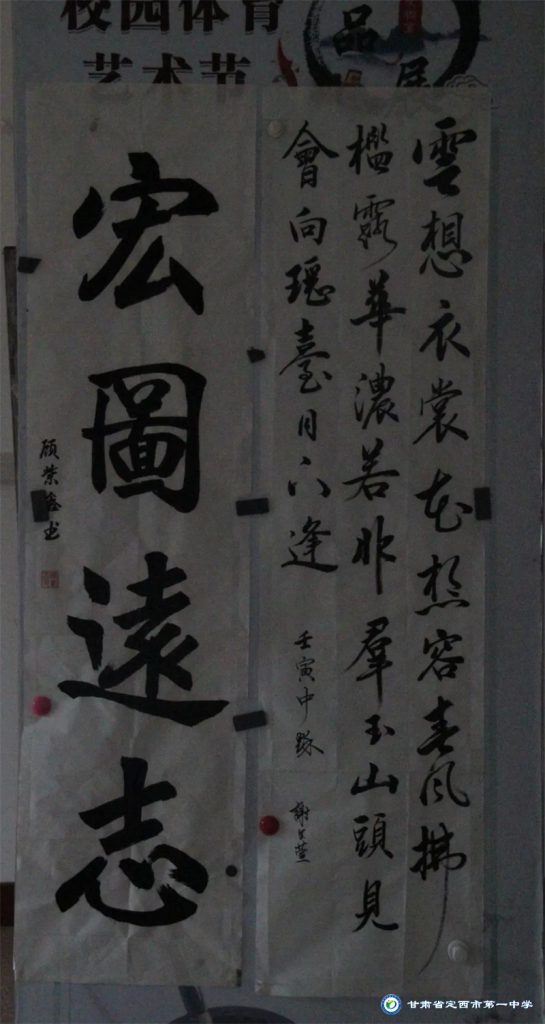 校园体育
艺术节
品展
雲想衣裳花想容春風拂
檻露華濃若非羣玉山頭見
會向瑶臺月下逢
壬寅中秋
謝文萱
宏圖遠志
顾 书
甘肃省定西市第一中学